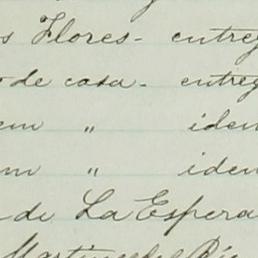 s Flores - entreg
o de casa - entreg
em " idem
em " iden
de La Espera